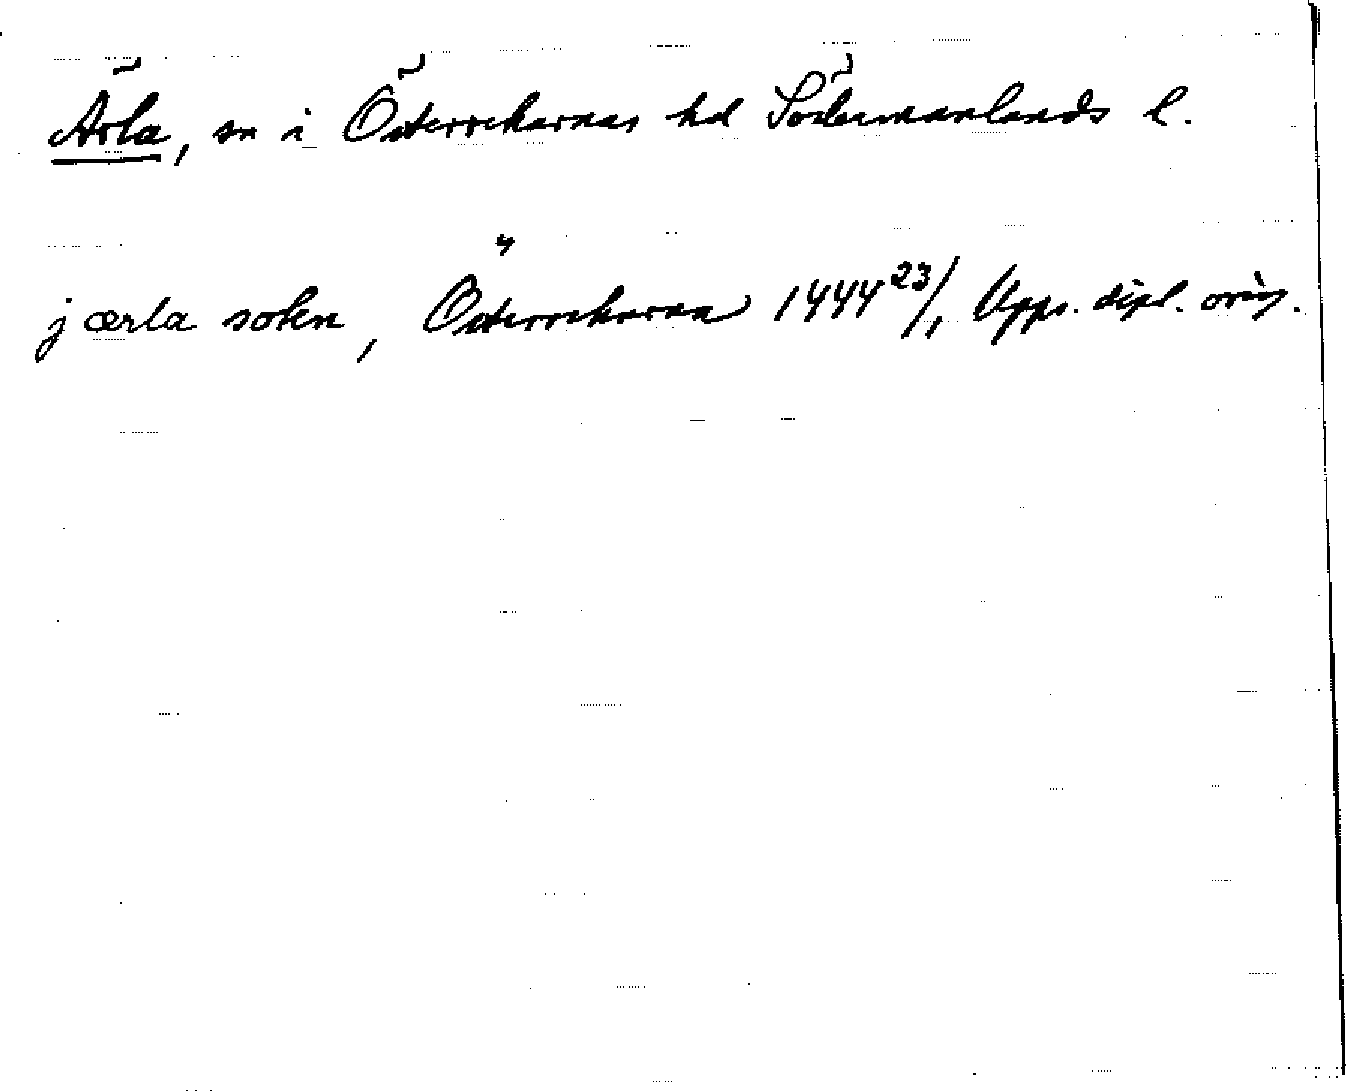 Ärla, sn i Österrekarnas hd Södermanlands l.
j ærla sokn, Österrekarna 1444 23/1 Upps. dipl. orig.